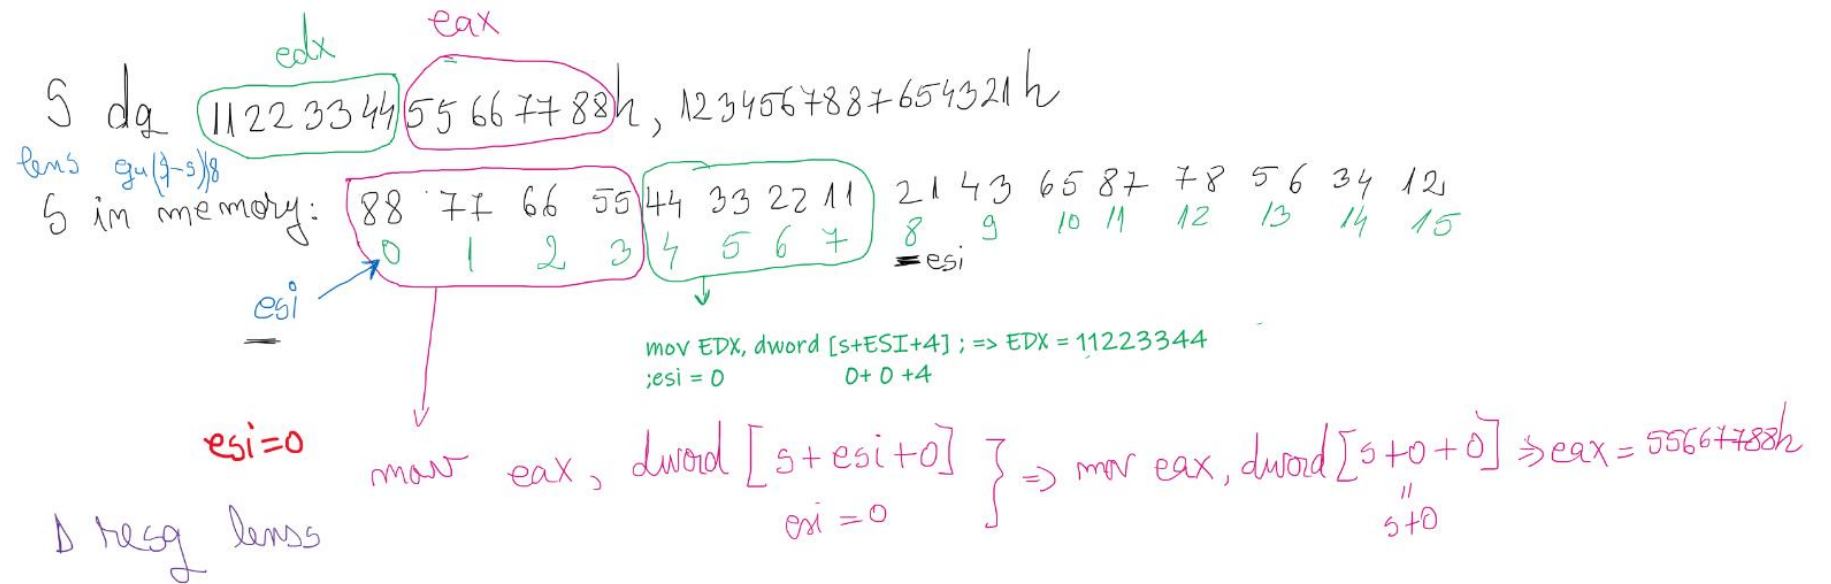 edx eax
S dq 11 22 33 44 55 66 77 88h, 1234567887654321h
lens equ ($-s)/8
S in memory: 88 77 66 55 44 33 22 11 21 43 65 87 78 56 34 12
0 1 2 3 4 5 6 7 8 9 10 11 12 13 14 15
esi =esi
mov EDX, dword [s+ESI+4] ; => EDX = 11223344
;esi = 0 0+ 0 +4
esi=0
mov eax, dword [s+esi+0] } => mov eax, dword [s+0+0] => eax = 55667788h
esi = 0 " s+0
D resq lens